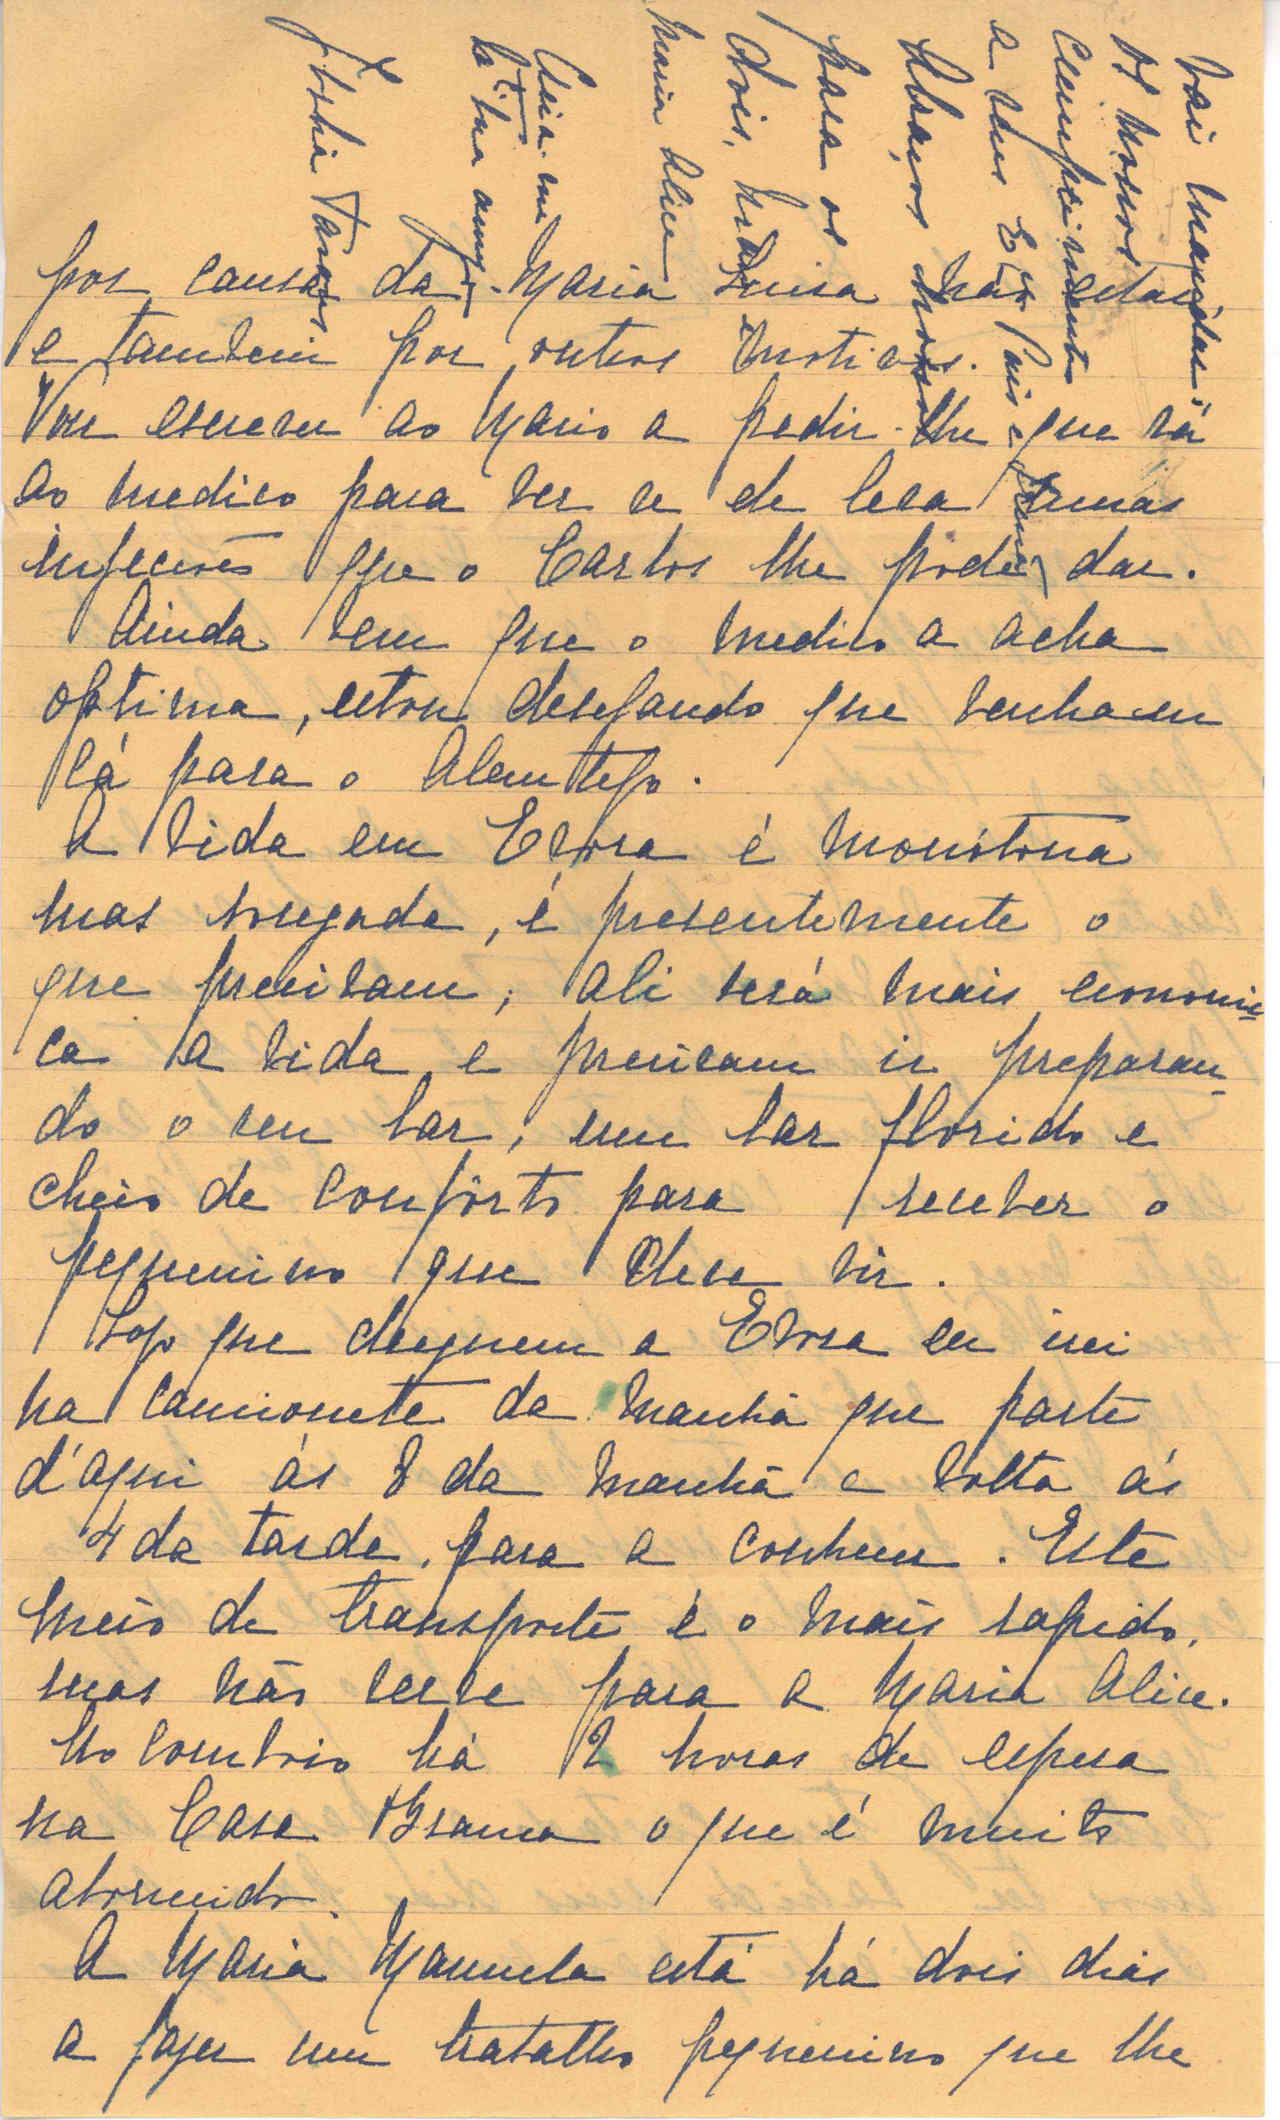 por causa da Maria Luisa não estar
e tambem por outros motivos.
Vou escrever ao Mario a pedir-lhe que vá
ao medico para ver se de leva umas
injecções que o Carlos lhe pode dar.
Ainda bem que o medico a acha
optima, estou desejando que venham
cá para o Alemtejo.
A vida em Evora é monótona
mas socegada, é presentemente o
que precisam; ali será mais economi-
ca a vida e precisam ir preparan-
do o seu lar, um lar florido e
cheio de confôrto para receber o
pequenino que deve vir.
Logo que cheguem a Evora eu irei
na camionete da manhã que parte
d'aqui ás 8 da manhã e volta ás
4 da tarde, para a conhecer. Este
meio de transporte é o mais rapido,
mas não serve para a Maria Alice.
No comboio há 2 horas de espera
na Casa Branca o que é muito
aborrecido.
A Maria Manuela está há dois dias
a fazer um trabalho pequenino que lhe
vai
Os nossos
cumprimentos
a seus Ex. Pais e
Abraços nossos
para os
dois,
Maria Alice
Creia-me
sua amiga